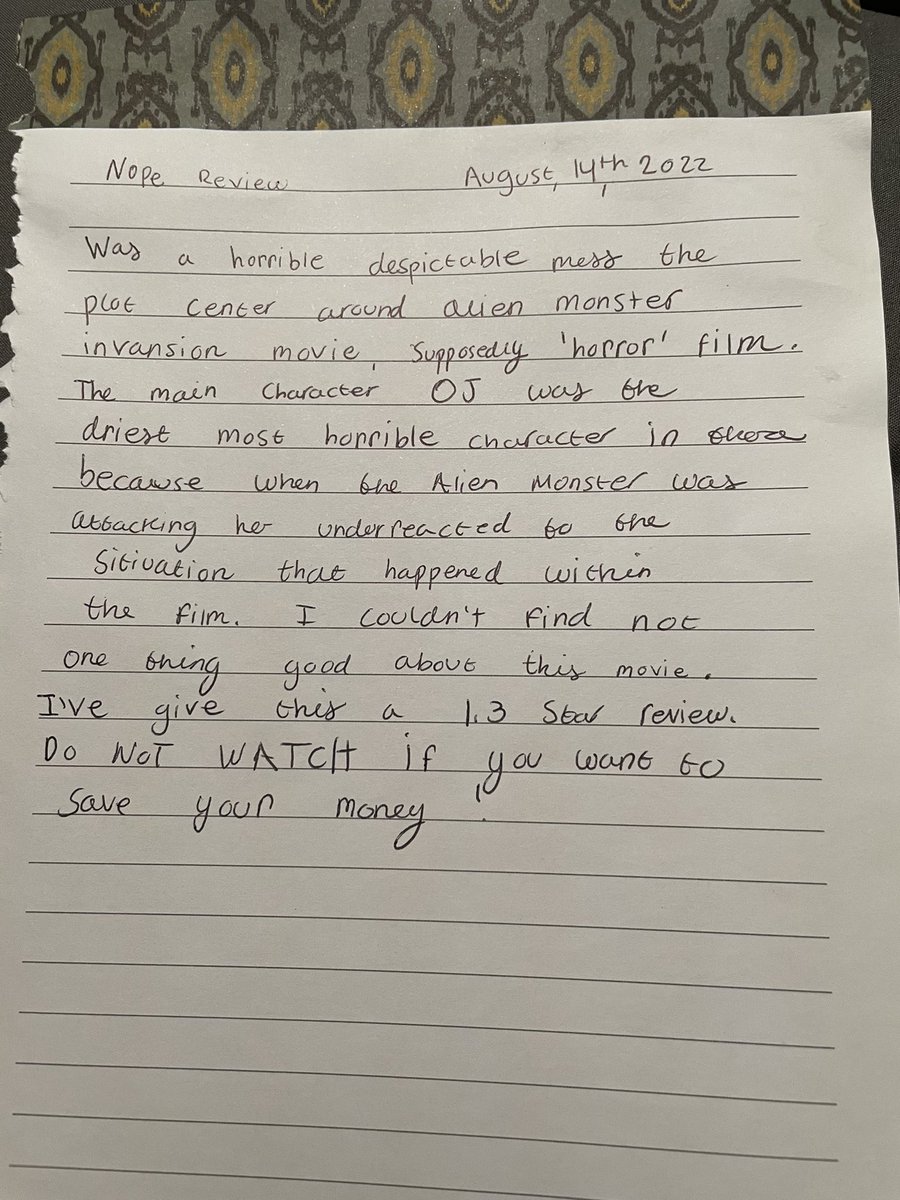 Nope Review August, 14th 2022
Was a horrible despictable mess the
plot center around alien monster
invansion movie, supposedly 'horror' film.
The main character OJ was the
driest most horrible character in there
because when the Alien Monster was
attacking he underreacted to the
Sitiuation that happened within
the film. I couldn't find not
one thing good about this movie.
I've give this a 1.3 Star review.
DO NOT WATCH if you want to
save your money!